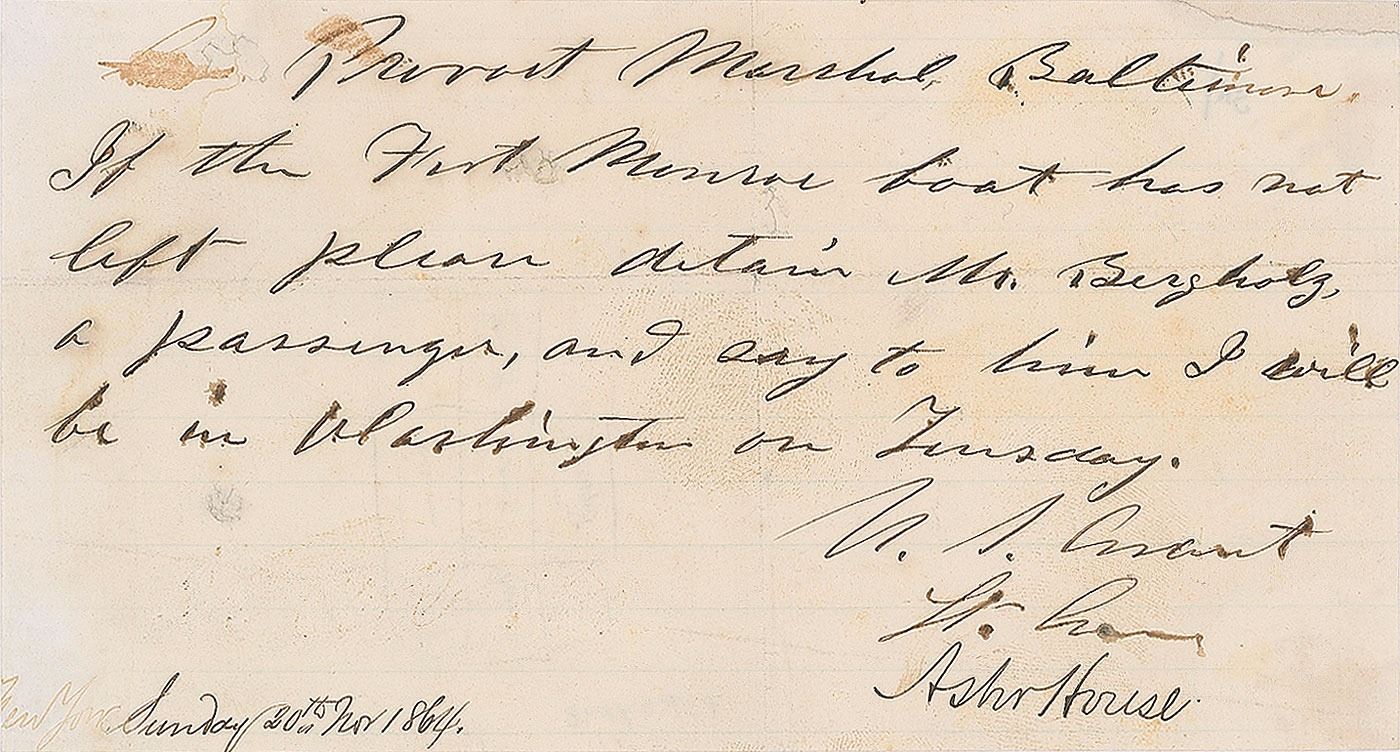 Provost Marshal, Baltimore.
If the Fort Monroe boat has not
left please detain Mr. Bergholz,
a passenger, and say to him I will
be in Washington on Tuesday.
U. S. Grant
Lt. Gen.
Astor House.
New York Sunday 20th Nov 1864.